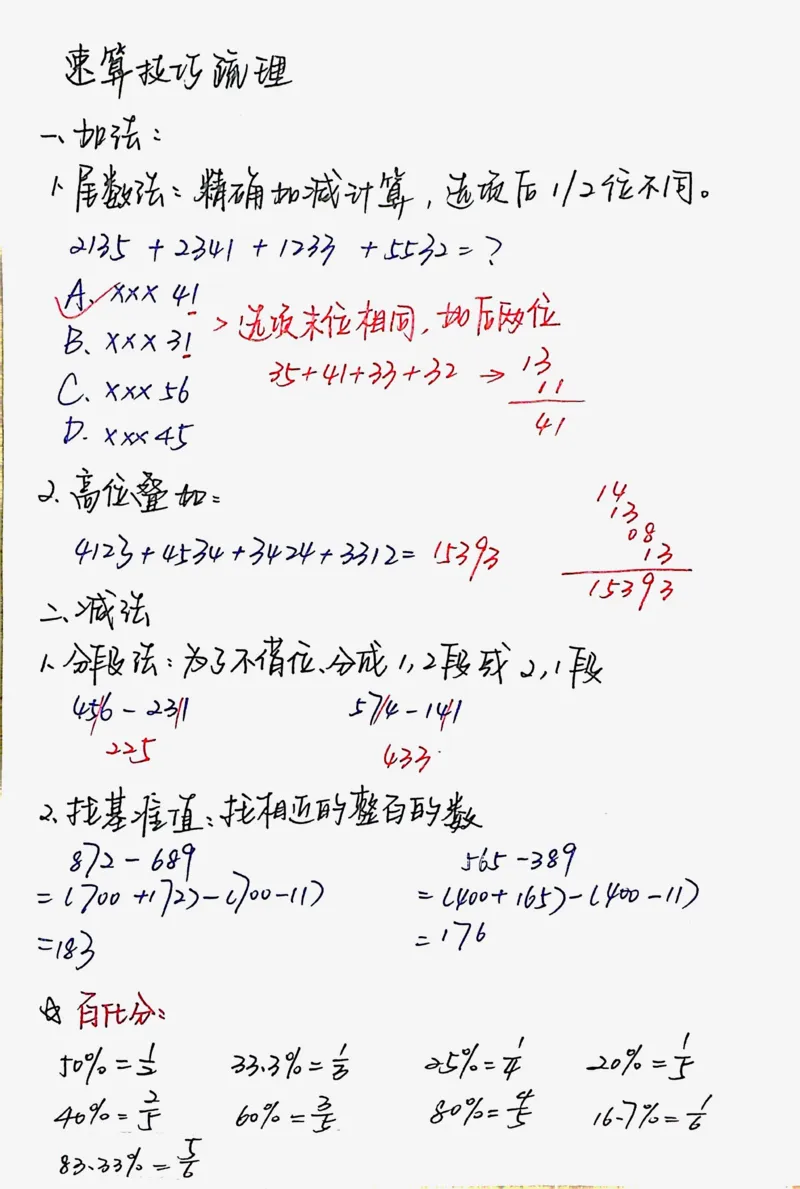 速算技巧疏理
一、加法：
1、尾数法：精确加减计算，选项后1/2位不同。
2135 + 2341 + 1233 + 5532 = ?
A、xxx 41
B、xxx 31
> 选项末位相同，加后两位
C、xxx 56
35+41+33+32 → 13
11
41
D. xxx 45
2、高位叠加：
4123+4534+3424+3312= 15393
14
13
08
13
15393
二、减法
1、分段法：为了不借位、分成1,2段或2,1段
45/6 - 23/1
225
5/74 - 1/41
433
2、找基准值：找相近的整百的数
872 - 689
= (700 + 172) - (700 - 11)
= 183
565 - 389
= (400 + 165) - (400 - 11)
= 176
☆ 百化分：
50% = 1/2 33.3% = 1/3 25% = 1/4 20% = 1/5
40% = 2/5 60% = 3/5 80% = 4/5 16.7% = 1/6
83.33% = 5/6